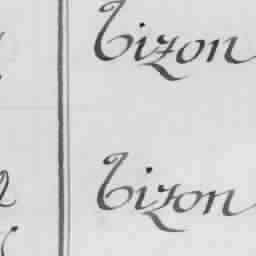 Bizon
Bizon